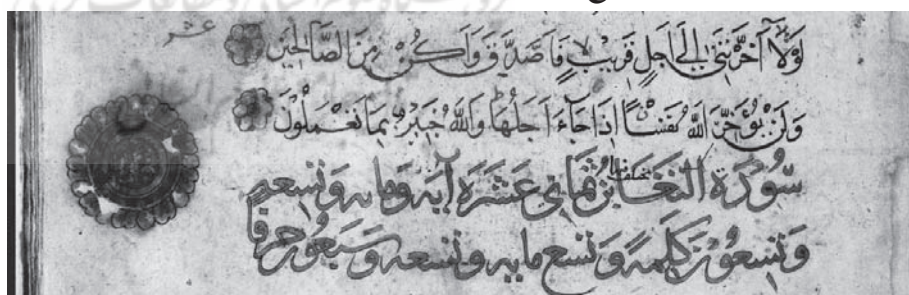 عشر
لَوْلَا أَخَّرْتَنِي إِلَىٰ أَجَلٍ قَرِيبٍ فَأَصَّدَّقَ وَأَكُنْ مِنَ الصَّالِحِينَ
وَلَنْ يُؤَخِّرَ اللَّهُ نَفْسًا إِذَا جَاءَ أَجَلُهَا وَاللَّهُ خَبِيرٌ بِمَا تَعْمَلُونَ
سُورَة التَّغَابُن ثَمَانِي عَشَرَه آيَه وَمايه وَتِسعه
وَتِسعُون كَلِمَة وَتسع مايه وتسعه وسَبعُون حَرفًا